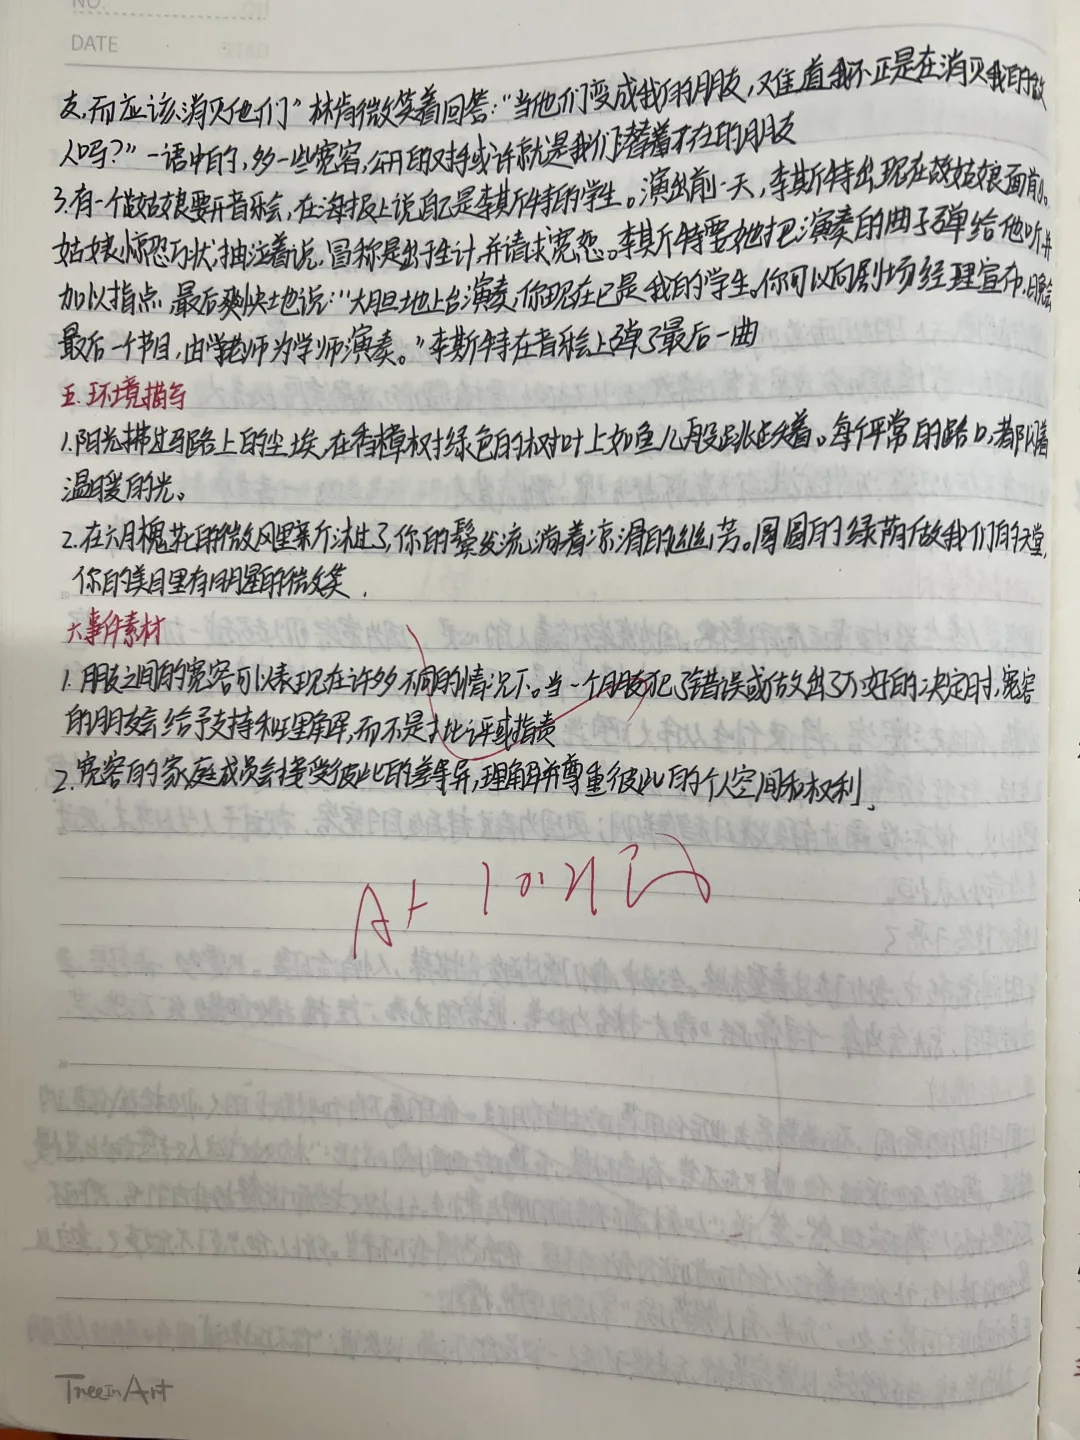 NO.
DATE
友,而应该消灭他们”林肯微笑着回答:“当他们变成我们的朋友,难道我不正是在消灭我的敌
人吗?”一语中的,多一些宽容,公开的对手或许就是我们潜在的朋友
3.有一个姑娘要开音乐会,在海报上说自己是李斯特的学生。演出前一天,李斯特出现在姑娘面前。
姑娘惊恐万状,抽泣着说,冒称是出于生计,并请求宽恕。李斯特要她把演奏的曲子弹给他听,并
加以指点,最后爽快地说:“大胆地上台演奏,你现在已是我的学生。你可以向剧场经理宣布,晚会
最后一个节目,由老师为学师演奏。”李斯特在音乐会上弹了最后一曲
五.环境描写
1.阳光拂过马路上的尘埃,在香樟树绿色的树叶上如鱼儿般跳跃着。每个平常的路口,都闪着
温暖的光。
2.在六月槐花的微风里新沐过了,你的鬓发流淌着凉滑的幽芳。圆圆的绿荫做我们的天堂,
你的美目里有明星的微笑.
六事件素材
1.朋友之间的宽容可以表现在许多不同的情况下。当一个朋友犯了错误或做出了不好的决定时,宽容
的朋友会给予支持和理解,而不是批评或指责
2.宽容的家庭成员会接受彼此的差异,理解并尊重彼此的个人空间和权利.
A+ 10.21
TreeInArt